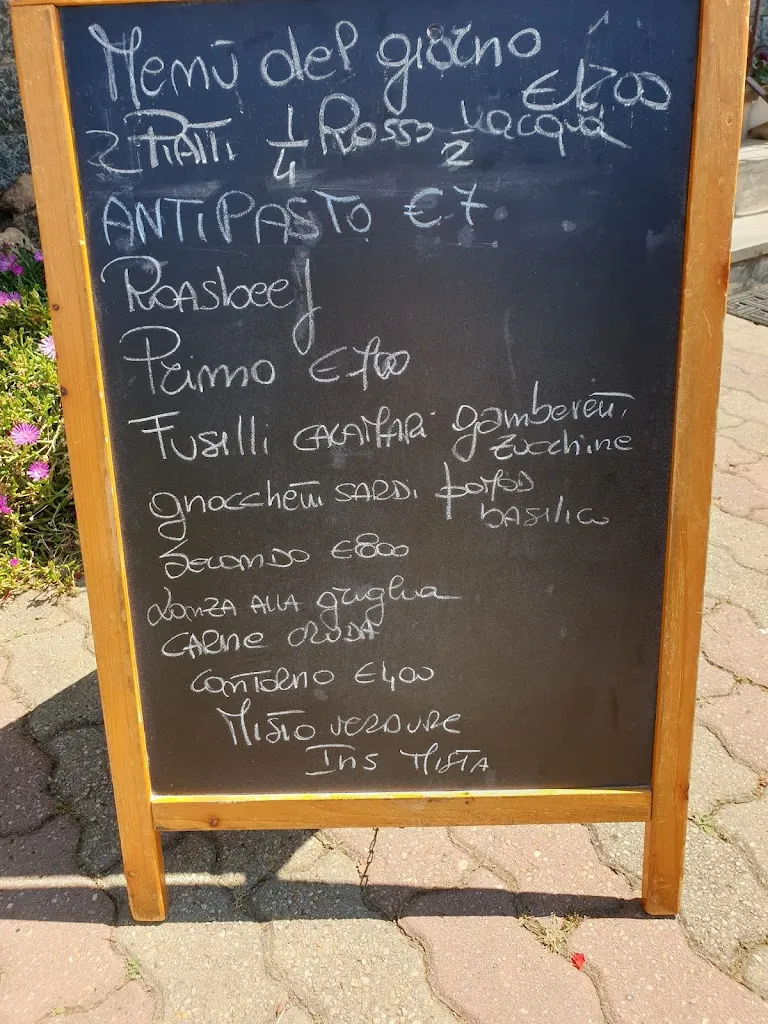 Menù del giorno
€12,00
2 PIATTI 1/4 Rosso 1/2 acqua
ANTIPASTO € 7
Roasbeef
Primo € 7,00
Fusilli CALAMARI gamberetti
zucchine
gnocchetti SARDI pomod
basilico
Secondo € 8,00
Lonza ALLA griglia
CARNE CRUDA
Contorno € 4,00
Misto verdure
Ins Mista